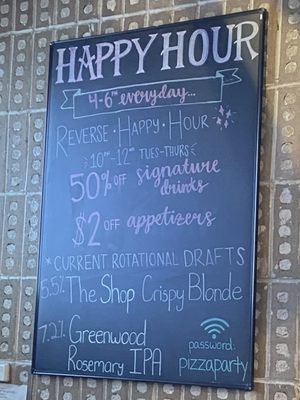 HAPPY HOUR
4-6PM everyday...
REVERSE · HAPPY · HOUR
10PM-12AM TUES-THURS
50% OFF signature drinks
$2 OFF appetizers
*CURRENT ROTATIONAL DRAFTS
5.5% The Shop Crispy Blonde
7.2% Greenwood Rosemary IPA
password:
pizzaparty